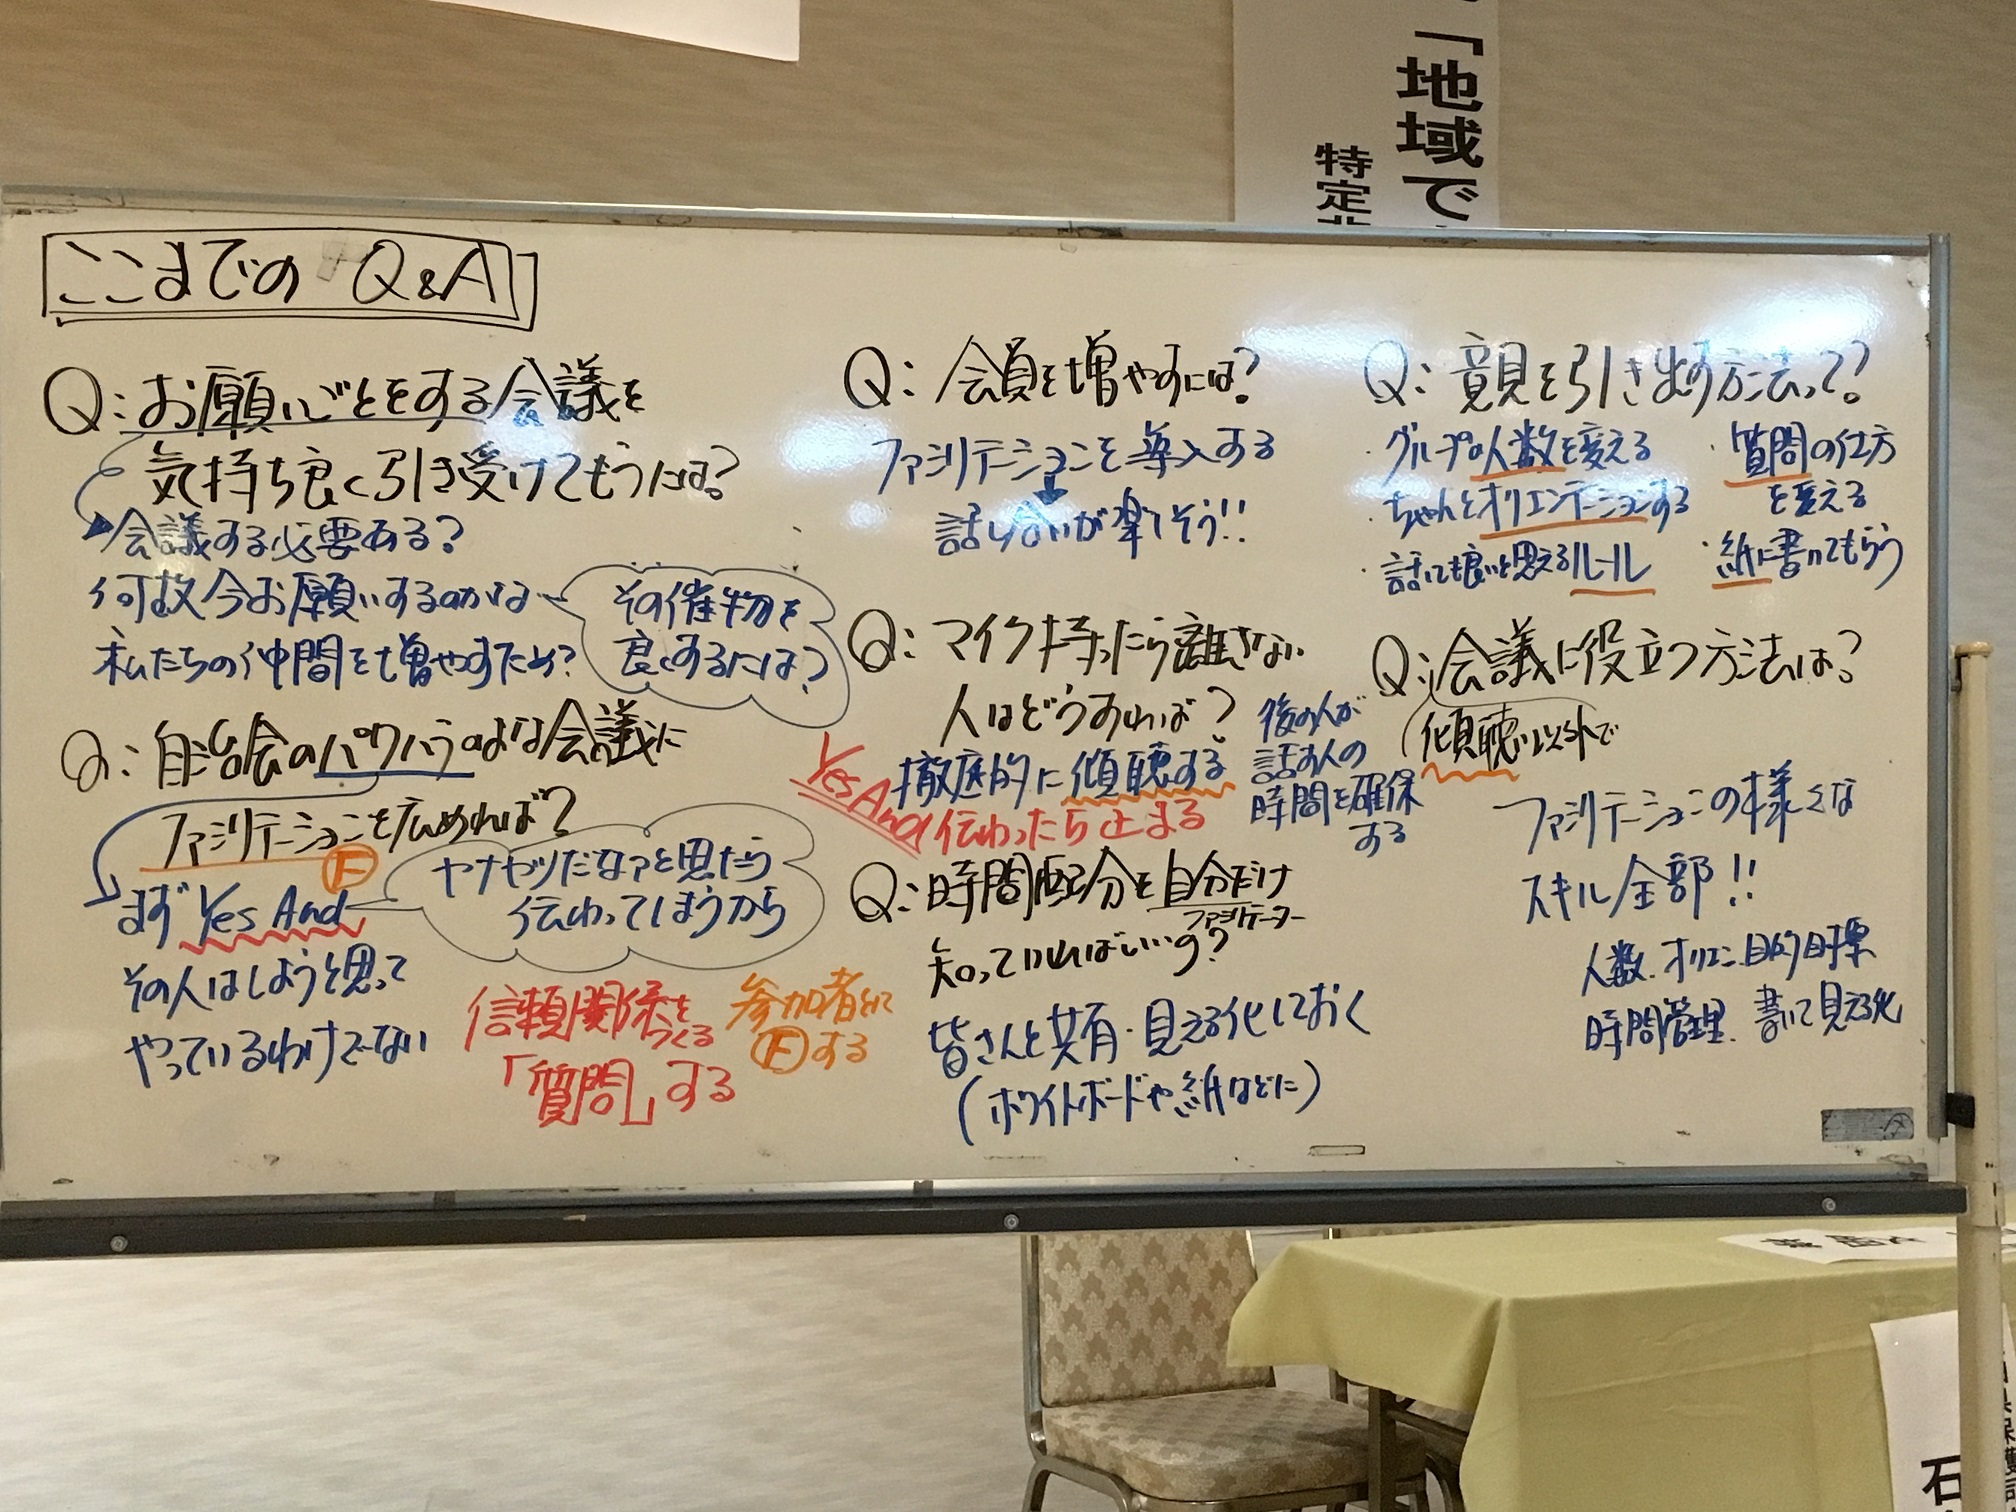 ここまでの Q&A
Q:お願いごとをする会議を
気持ち良く引き受けてもらうには?
会議する必要ある?
何故今お願いするのかな
私たちの仲間を増やすため?
その催物を
良くするには?
Q:自治会のパワハラのような会議に
ファシリテーションを広めれば?
F
まず Yes And
その人はしようと思って
やっているわけでない
ヤナヤツだなァと思ったら
伝わってしまうから
信頼関係を
つくる
「質問」する
参加者として
Fする
Q:会員を増やすには?
ファシリテーションを導入する
話し合いが楽しそう!!
Q:マイク持ったら離さない
人はどうすれば?
徹底的に傾聴する
Yes And
伝わったら止まる
後の人が
話す人の
時間を確保
する
Q:時間配分を自分だけ
ファシリテーター
知っていればいいの?
皆さんと共有・見える化しておく
(ホワイトボードや紙などに)
Q:意見を引き出す方法って?
・グループの人数を変える
・ちゃんとオリエンテーションする
・話しても良いと思えるルール
・質問の仕方
を変える
・紙に書いてもらう
Q:会議に役立つ方法は?
(傾聴以外で
ファシリテーションの様々な
スキル全部!!
人数.オリエン.目的目標
時間管理.書いて見える化
「地域で
特定
石